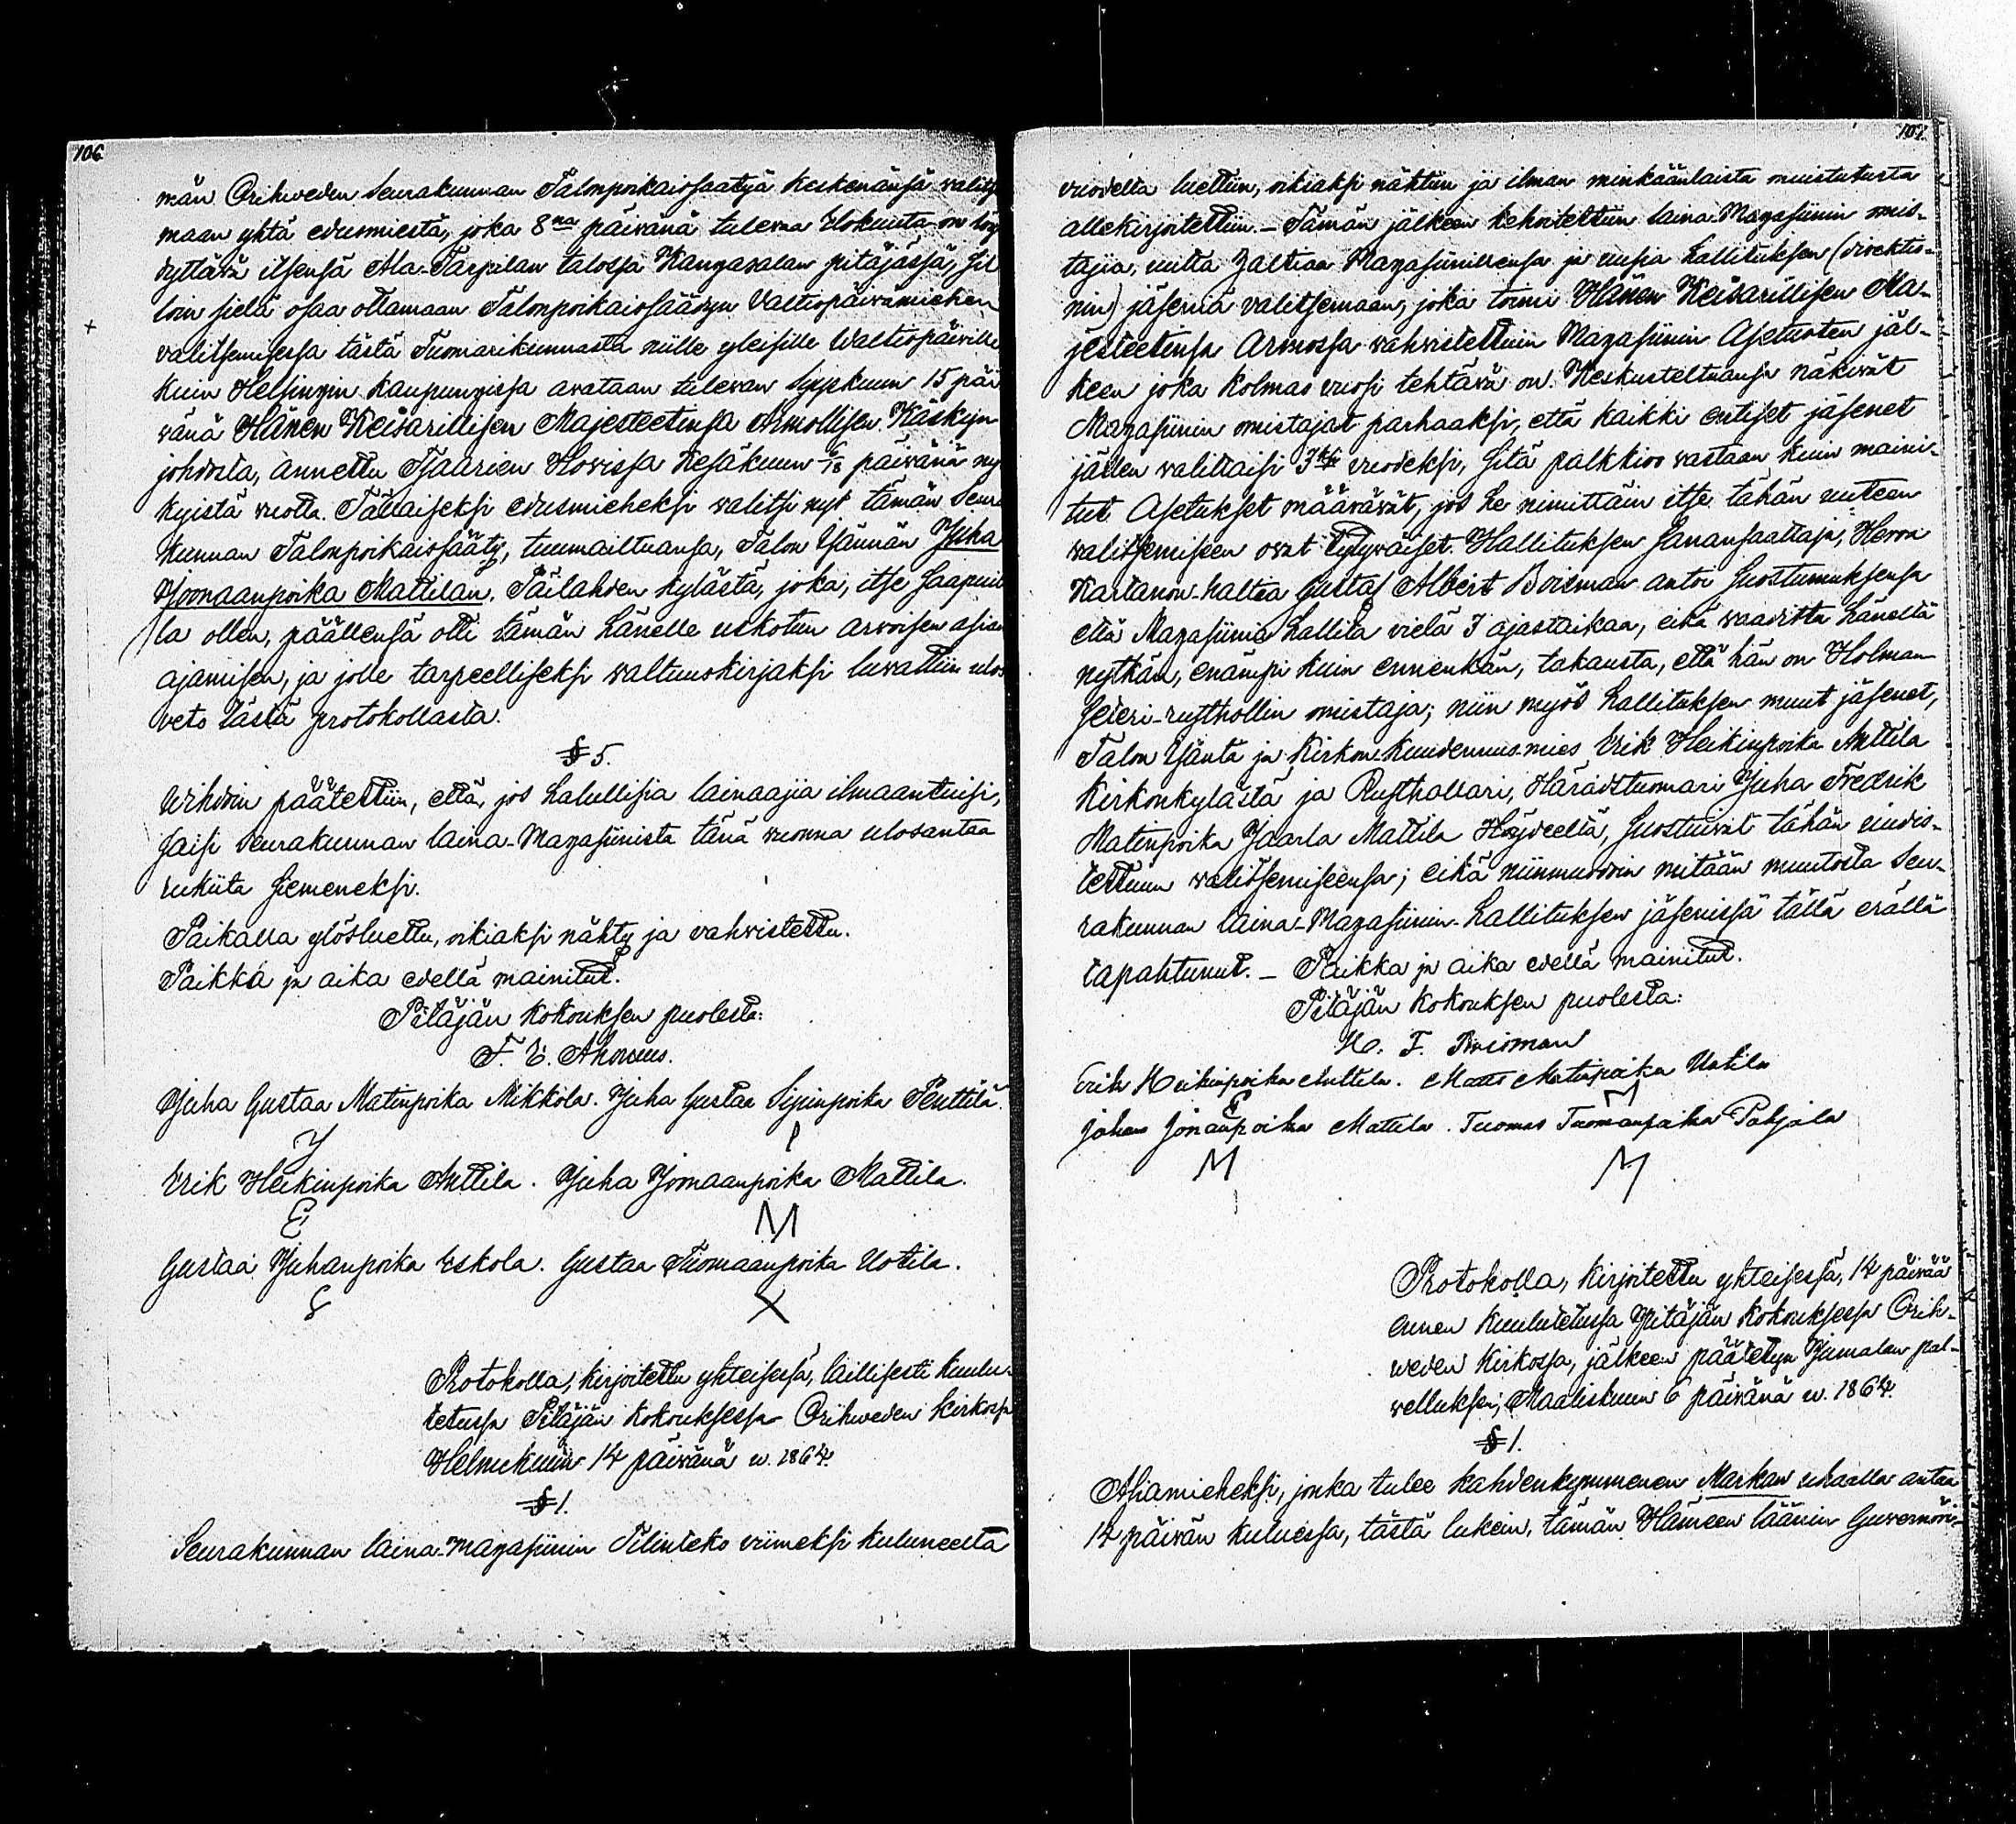 106
män Orihweden Seurakunnan Talonpoikaissäätyä keskenänsä walits
maan yhtä edusmiestä, joka 8na päivänä tulewaa Elokuuta on löy
dyttävä itsensä Ala-Tarpilan talossa Kangasalan pitäjässä, sil
loin sielä osaa ottamaan Talonpoikaissäädyn Valtiopäivämiehen
valitsemisessa tästä Tuomarikunnasta niille yleisille Waltiopäiville
kuin Helsingin kaupungissa avataan tulevan Syyskuun 15 päi
vänä Hänen Keisarillisen Majesteetinsa Armollisen Käskyn
johdosta, annettu Tsaarien Hovissa Kesäkuun 6/18 päivänä ny
kyistä vuotta. Tällaiseksi edusmieheksi valitsi nyt tämän Seura
kunnan Talonpoikaissääty, tuumailtuansa, Talon Isännän Juha
Joonaanpoika Mattilan, Päilahden kylästä, joka, itse saapuil
la ollen, päällensä otti tämän hänelle uskotun arvoisen asian
ajamisen, ja jolle tarpeelliseksi valtuuskirjaksi luvattiin ulos
veto tästä protokollasta.
§ 5.
Wihdoin päätettiin, että, jos halullisia lainaajia ilmaantuisi,
saisi Seurakunnan laina-Magasiinista tänä vuonna ulosantaa
rukiita siemeneksi.
Paikalla ylösluettu, oikiaksi nähty ja vahvistettu.
Paikka ja aika edellä mainitut.
Pitäjän kokouksen puolesta:
F. E. Ahonius.
Juha Gustaa Matinpoika Mikkola. Juha Gustaa Sipinpoika Penttilä.
Erik Heikinpoika Anttila. Juha Joonaanpoika Mattila.
E M
Gustaa Juhanpoika Eskola. Gustaa Tuomaanpoika Uotila.
X
Protokolla, kirjoitettu yhteisessä, laillisesti kuulu-
tetussa Pitäjän kokouksessa Orihweden kirkossa
Helmikuun 14 päivänä w. 1864.
§ 1.
Seurakunnan laina-magasiinin Tilinteko viimeksi kuluneelta
107.
vuodelta luettiin, oikiaksi nähtiin ja ilman minkäänlaista muistutusta
allekirjoitettiin. – Tämän jälkeen kehoitettiin laina-Magasiinin omis-
tajia, uutta haltiaa Magasiinillensa ja uusia hallituksen (direktio-
nin) jäseniä valitsemaan, joka toimi Hänen Keisarillisen Ma-
jesteetinsa Armossa vahvistettuin Magasiinin Asetusten jäl-
keen joka kolmas vuosi tehtävä on. Keskusteltuansa näkivät
Magasiinin omistajat parhaaksi, että kaikki entiset jäsenet
jällen valittaisi 3ksi vuodeksi, sitä palkkioo vastaan kuin maini-
tut Asetukset määräävät, jos he nimittäin itse tähän uuteen
valitsemiseen ovat tytyväiset. Hallituksen Sanansaattaja, Herra
Kartanon-haltia Gustaf Albert Boisman antoi suostumuksensa
että Magasiinia hallita vielä 3 ajastaikaa, eikä vaadittu häneltä
nytkän, enämpi kuin ennenkän, takausta, että hän on Holman
seteri-rusthollin omistaja; niin myös hallituksen muut jäsenet,
Talon Isäntä ja Kirkon-kuudennusmies Erik Heikinpoika Anttila
Kirkonkylästä ja Rusthollari, Häradstuomari Juha Fredrik
Matinpoika Jaarla Mattila Haydeeltä, suostuivat tähän uudis-
tettuun valitsemiseensa; eikä niinmuodoin mitään muutosta Seu-
rakunnan laina-Magasiinin-hallituksen jäsenissä tällä erällä
tapahtunut. – Paikka ja aika edellä mainitut.
Pitäjän kokouksen puolesta:
F. Boisman
Erik Heikinpoika Anttila. Matts Matinpoika Uotila
E M
Johan Jonanpoika Mattila. Tuomas Tuomanpoika Pohjola
M M
Protokolla, kirjoitettu yhteisessä, 14 päivää
ennen kuulutetussa Pitäjän kokouksessa Orih-
weden kirkossa, jälkeen päätetyn Jumalan pal-
velluksen, Maaliskuun 6 päivänä w. 1864.
§ 1.
Asiamieheksi, jonka tulee kahdenkymmenen Markan uhaalla antaa
14 päivän kuluessa, tästä lukein, tämän Hämeen läänin Guvernööri-